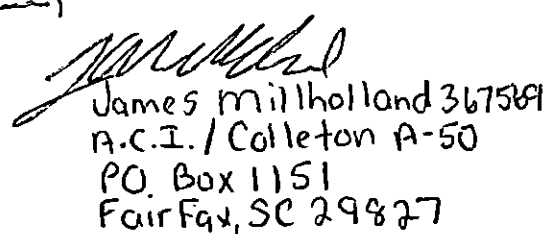 James Millholland 367569
A.C.I. / Colleton A-50
PO. Box 1151
FairFax, SC 29827